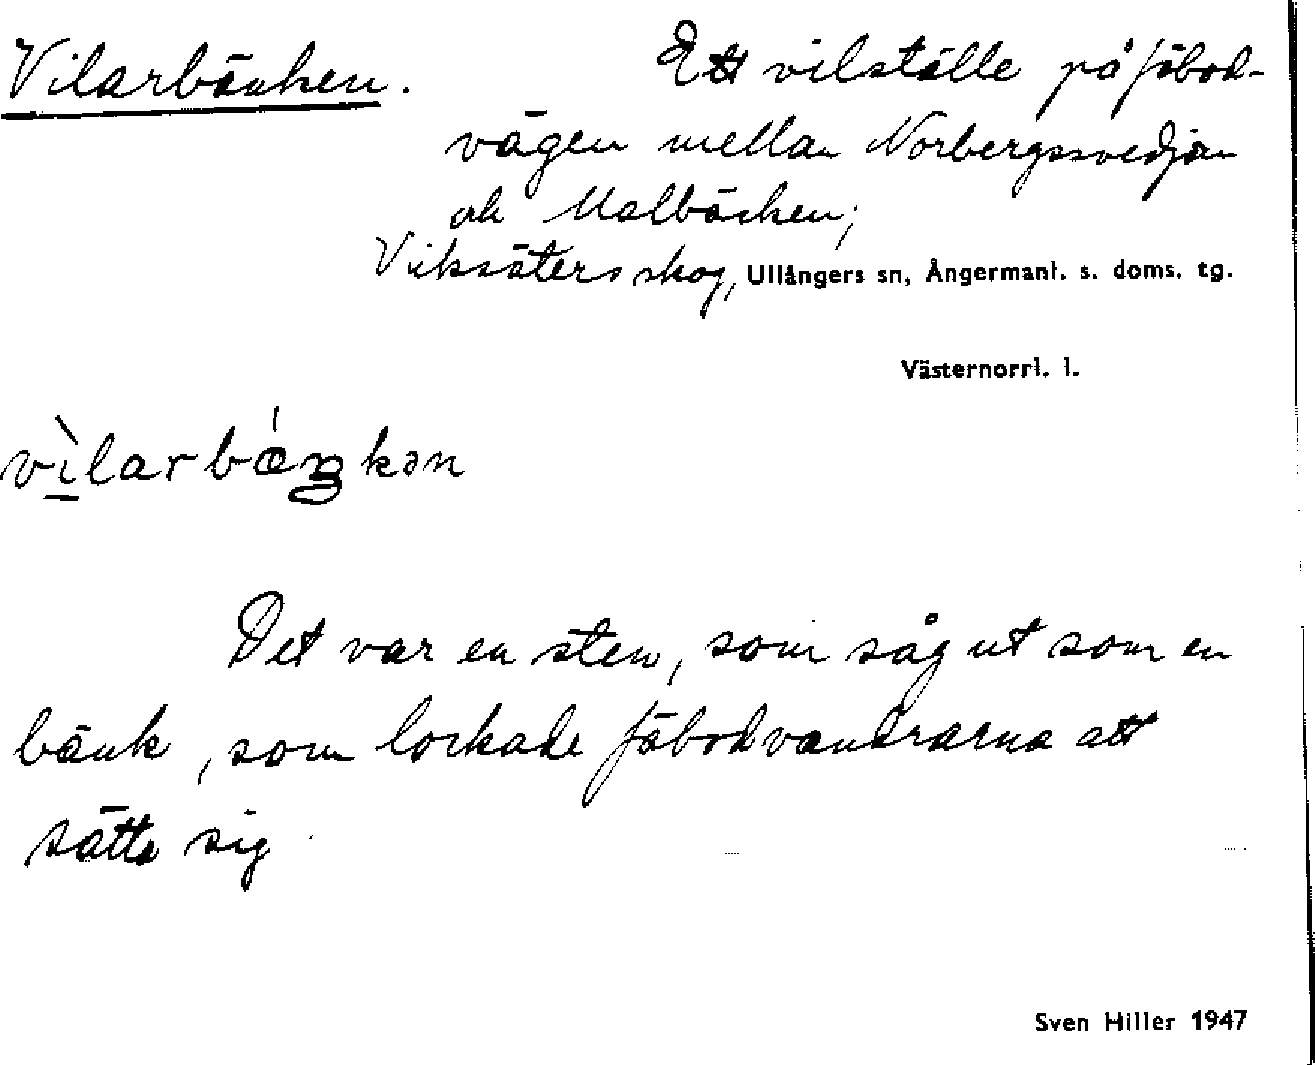 Vilarbänken.
Ett vilställe på fäbod-
vägen mellan Norbergssvedjan
och Malbäcken;
Viksäters skog, Ullångers sn, Ångermanl. s. doms. tg.
Västernorrl. l.
vìlarbǽŋkən
Det var en sten, som såg ut som en
bänk, som lockade fäbodvandrarna att
sätta sig.
Sven Hiller 1947